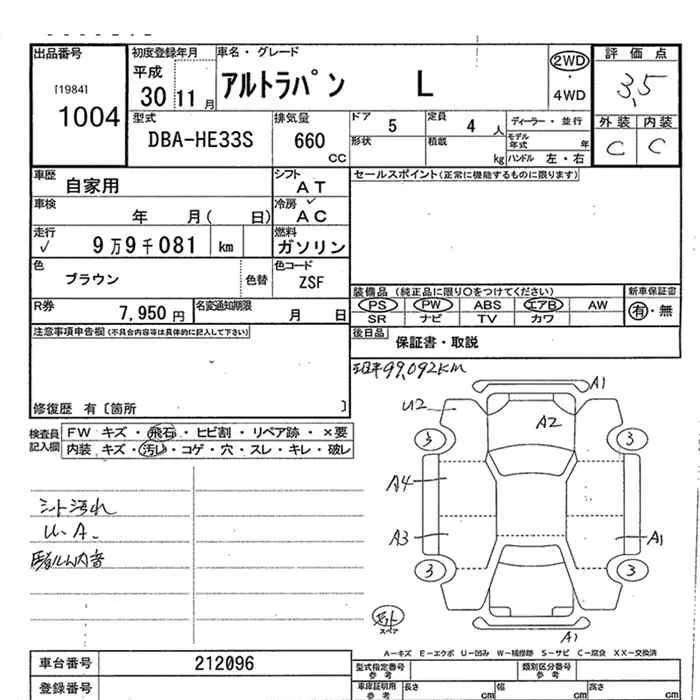 出品番号 初度登録年月 車名・グレード 評価点
[1984] 平成 アルトラパン L 2WD
1004 30 11月 ・ 3.5
4WD
型式 排気量 ドア 5 定員 4 人 ディーラー・並行 外装 内装
DBA-HE33S 660 CC 形状 積載 kg モデル年式 年 C C
ハンドル 左・右
車歴 自家用 シフト AT セールスポイント(正常に機能するものに限ります)
車検 年 月( 日) 冷房 AC
走行 9万9千081 km 燃料 ガソリン
色 ブラウン 色替 色コード ZSF
装備品 (純正品に限り○をつけてください) 新車保証書
PS PW ABS エアB AW 有・無
SR ナビ TV カワ
R券 7,950円 名変通知期限 月 日
後日品 保証書・取説
注意事項申告欄(不具合内容等は具体的に記入して下さい)
99,092KM
修復歴 有〔箇所 〕
検査員記入欄 FW キズ・飛石・ヒビ割・リペア跡・×要
内装 キズ・汚れ・コゲ・穴・スレ・キレ・破レ
A1
U2
A2
3 3
A4
A3 A1
3 3
A1
シート汚れ
U.A.
スペア
A－キズ E－エクボ U－凹み W－補修跡 S－サビ C－腐食 XX－交換済
車台番号 212096 型式指定番号 参考 類別区分番号 参考
登録番号 車庫証明用 参考 長さ cm 幅 cm 高さ cm